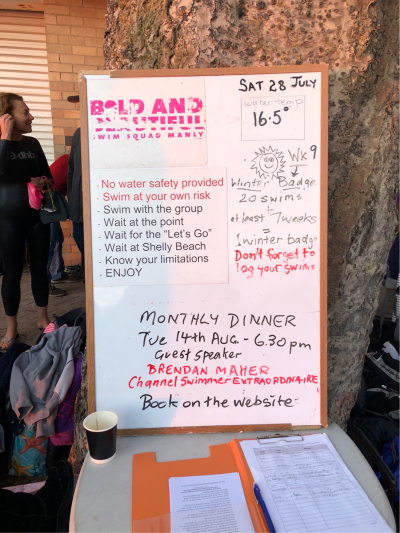 SAT 28 JULY
BOLD AND
BEAUTIFUL
SWIM SQUAD MANLY
water temp
16.5°
Wk 9
Winter Badge
20 swims
+
at least 7 weeks
=
1 winter badge
Don't forget to
log your swims
- No water safety provided
- Swim at your own risk
- Swim with the group
- Wait at the point
- Wait for the "Let's Go"
- Wait at Shelly Beach
- Know your limitations
- ENJOY
MONTHLY DINNER
Tue 14th AUG - 6.30pm
Guest speaker
BRENDAN MAHER
Channel Swimmer EXTRAORDINAIRE
Book on the website